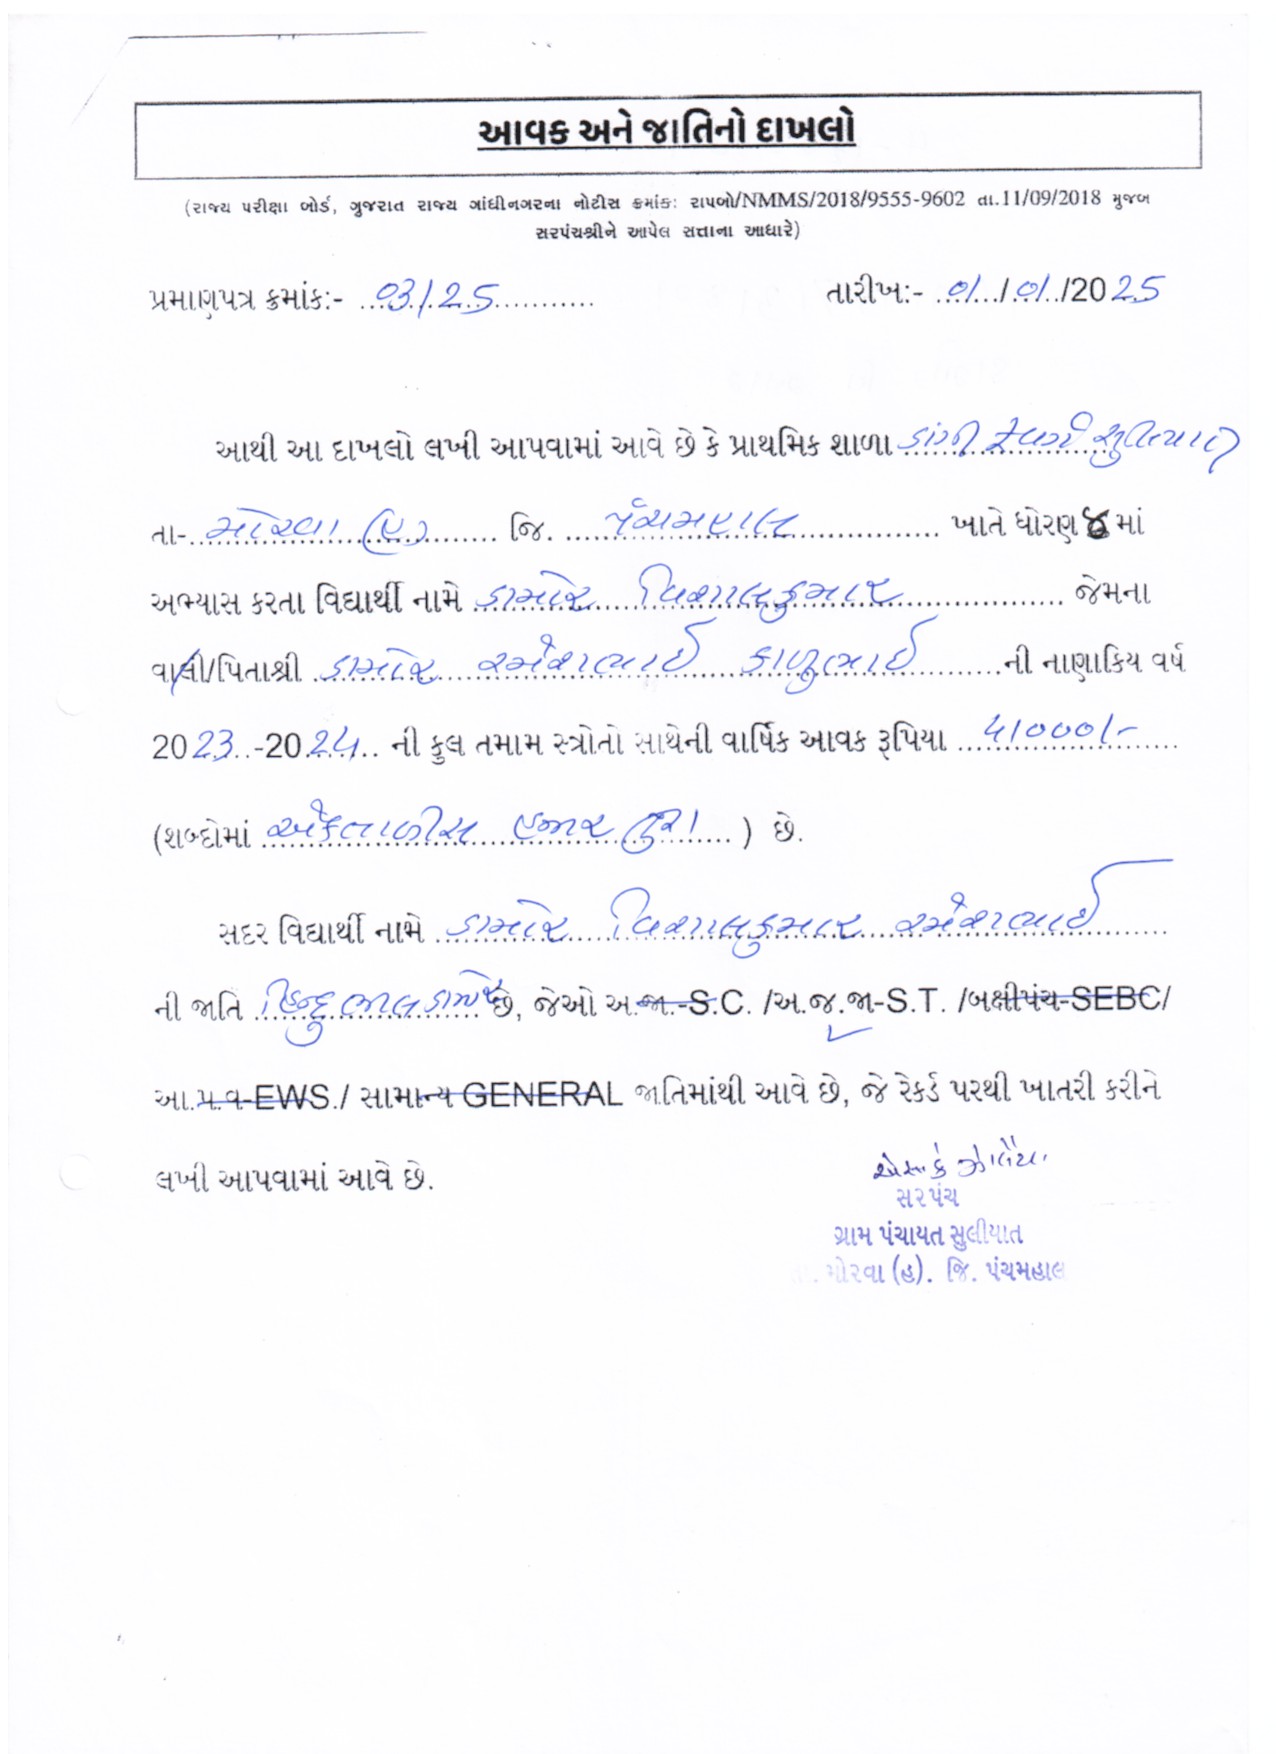 આવક અને જાતિનો દાખલો
(રાજ્ય પરીક્ષા બોર્ડ, ગુજરાત રાજ્ય ગાંધીનગરના નોટીસ ક્રમાંક: રાપબો/NMMS/2018/9555-9602 તા.11/09/2018 મુજબ
સરપંચશ્રીને આપેલ સત્તાના આધારે)
પ્રમાણપત્ર ક્રમાંક:- 03/25 તારીખ:- 01/01/2025
આથી આ દાખલો લખી આપવામાં આવે છે કે પ્રાથમિક શાળા
તા-મોરવા (હ) જિ. પંચમહાલ ખાતે ધોરણ 8 માં
અભ્યાસ કરતા વિદ્યાર્થી નામે ડામોર વિશાલકુમાર જેમના
વાલી/પિતાશ્રી ડામોર રમેશભાઈ કાળુભાઈ ની નાણાકિય વર્ષ
2023-2024 ની કુલ તમામ સ્ત્રોતો સાથેની વાર્ષિક આવક રૂપિયા 41000/-
(શબ્દોમાં એકતાળીસ હજાર પુરા ) છે.
સદર વિદ્યાર્થી નામે ડામોર વિશાલકુમાર રમેશભાઈ
ની જાતિ હિન્દુ ભીલ ડામોર છે, જેઓ અ.જા.-S.C. /અ.જ.જા-S.T. /બક્ષીપંચ-SEBC/
આ.પ.વ-EWS./ સામાન્ય GENERAL જાતિમાંથી આવે છે, જે રેકર્ડ પરથી ખાતરી કરીને
લખી આપવામાં આવે છે.
સરપંચ
ગ્રામ પંચાયત સુલીયાત
તા. મોરવા (હ). જિ. પંચમહાલ